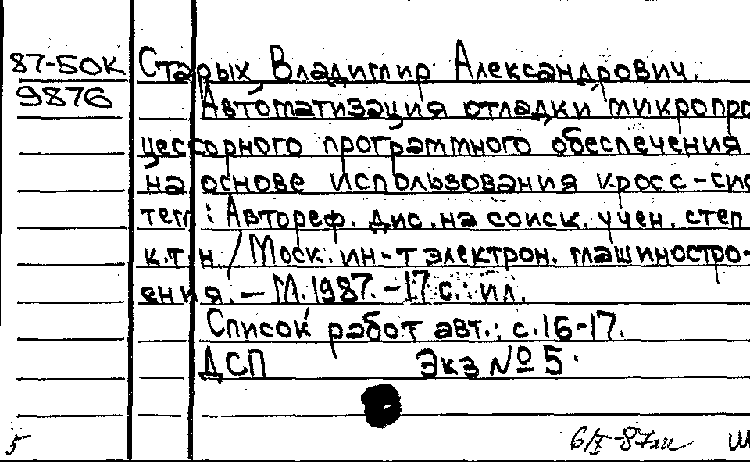 87-50К Старых, Владимир Александрович.
9876 Автоматизация отладки микропро
цессорного программного обеспечения
на основе использования кросс-сис
тем: Автореф. дис. на соиск. учен. степ
к.т.н. / Моск. ин-т электрон. машиностро-
ения. — М. 1987. - 17 с.: ил.
Список работ авт.: с.16-17.
ДСП Экз № 5.
5